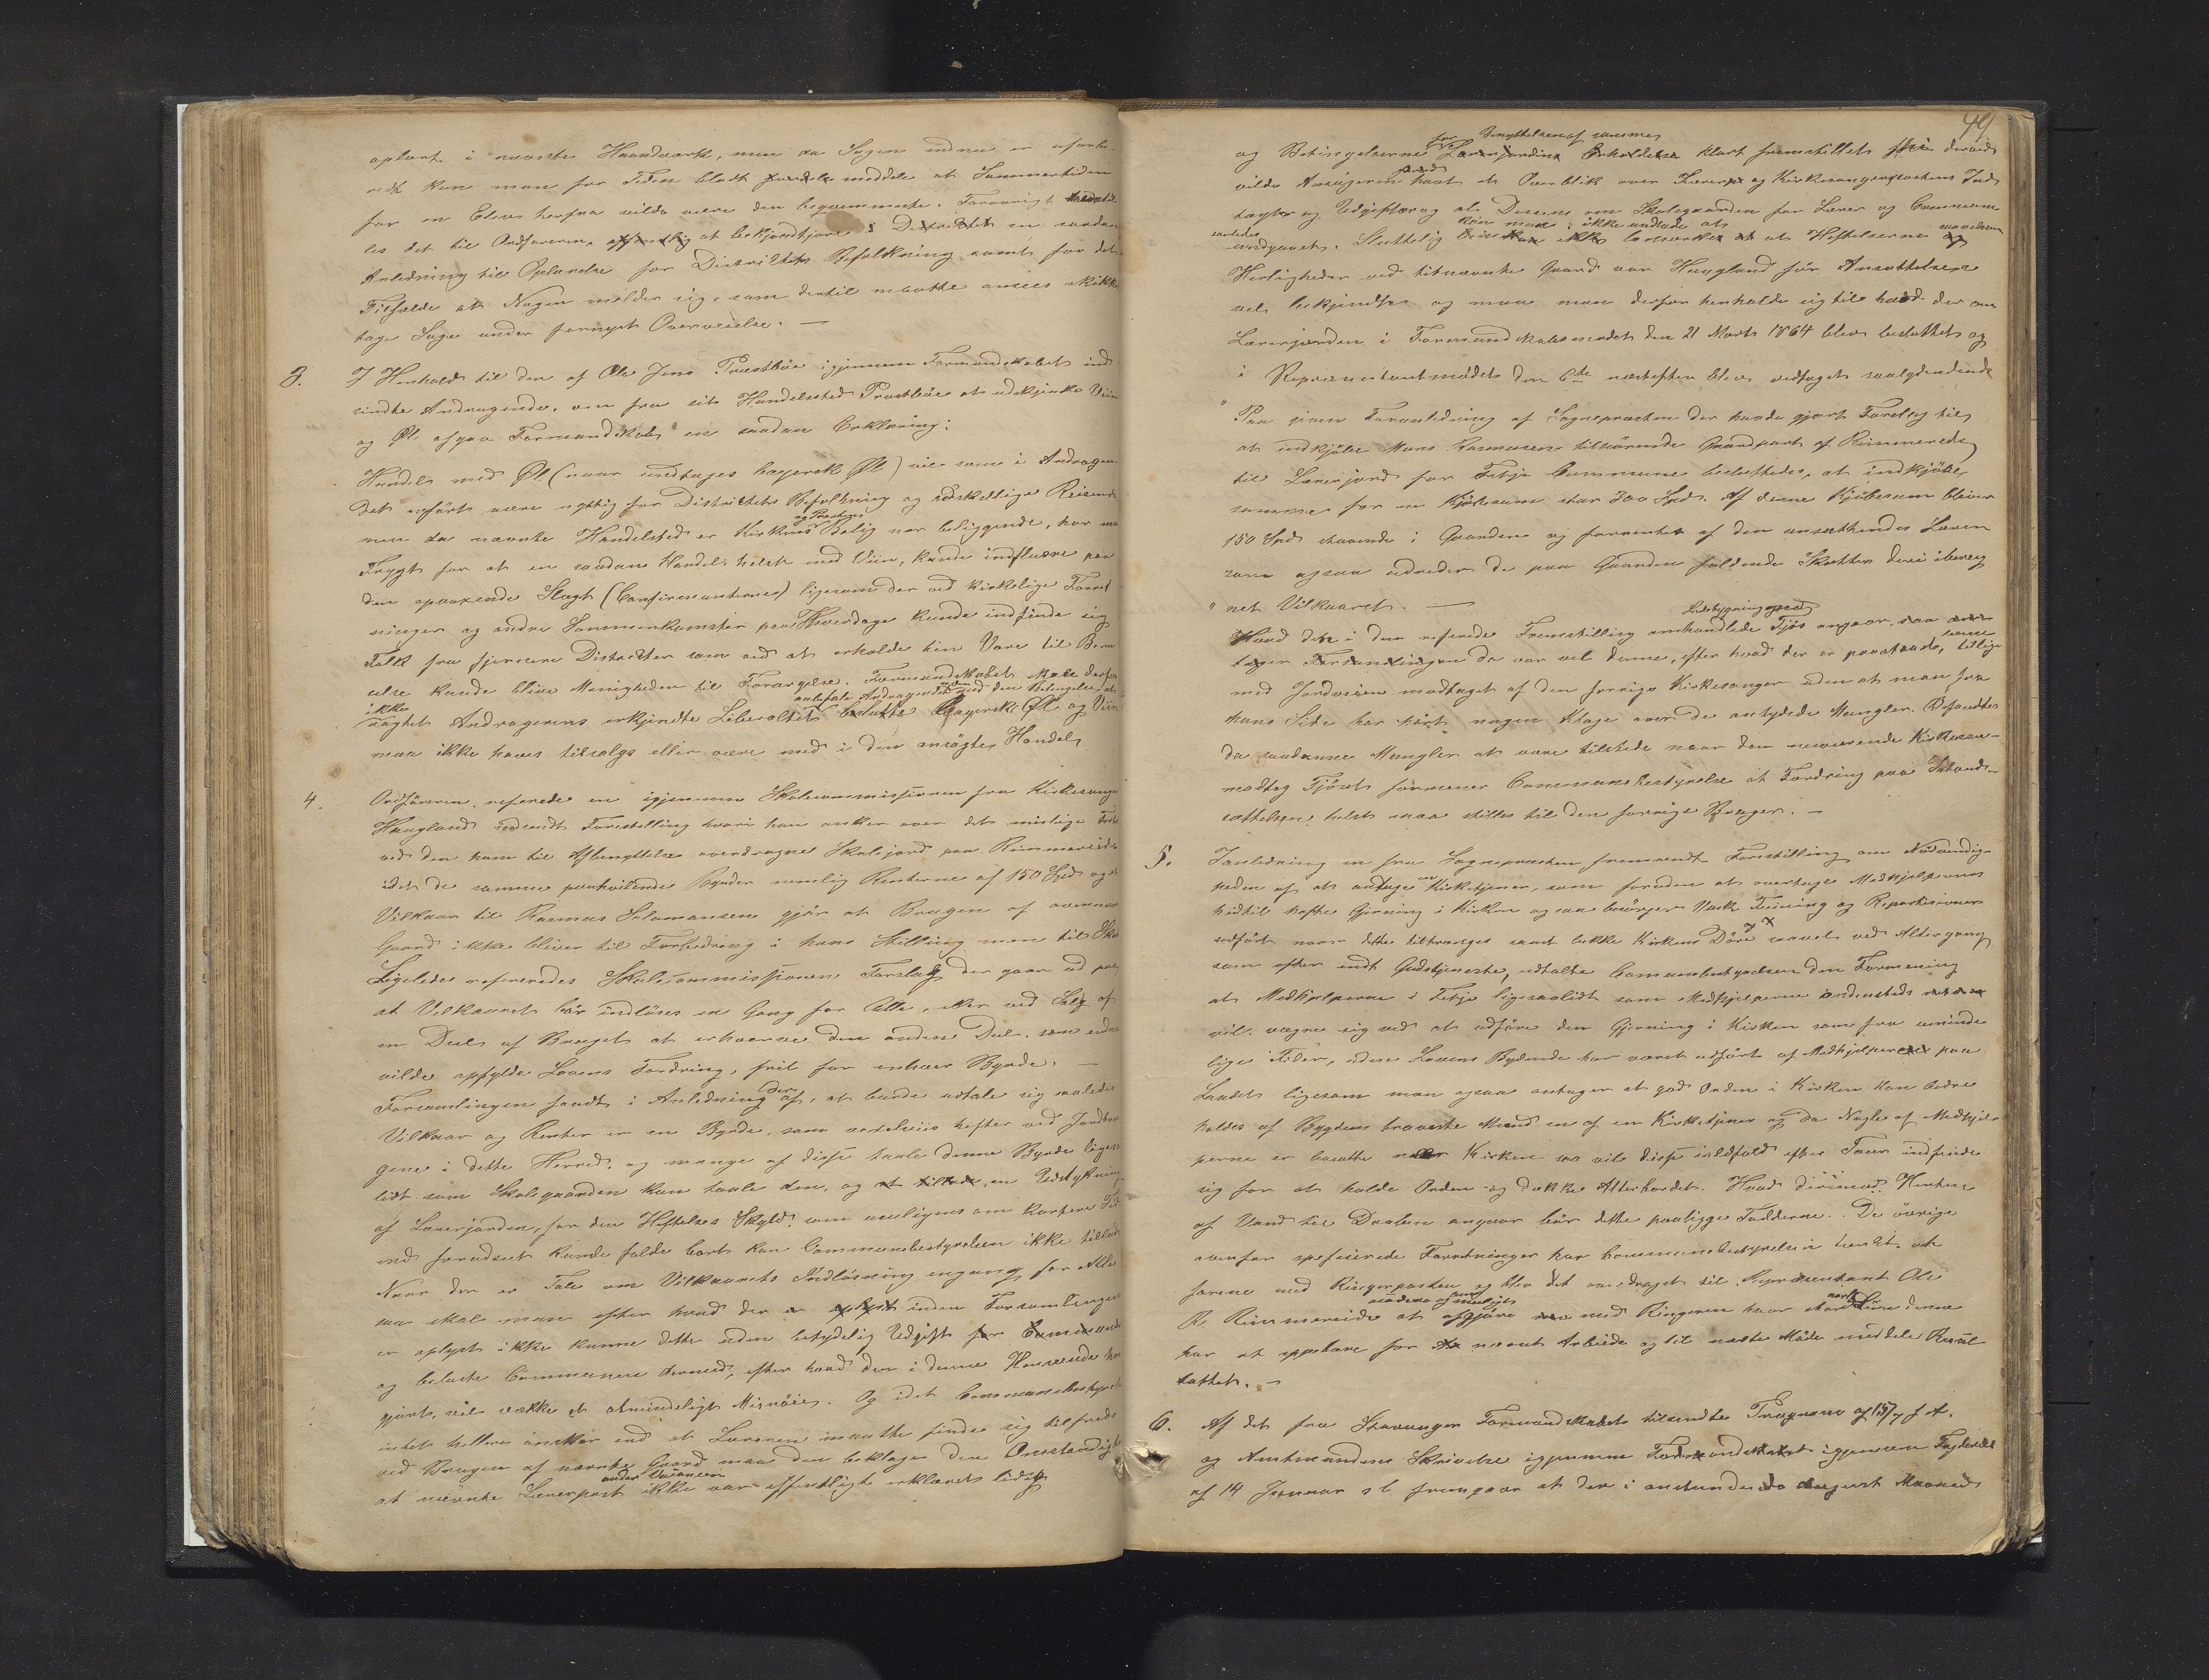 oplært i nævnte Haandværk, men da Sagen endnu er uforbe-
redt kan man for Tiden blodt meddele at Sommertiden
for en Elev herfra vilde være den beqvemmeste. Forøvrigt
les det til Ordføreren, at bekjendtgjøre i Distriktet en saadan
Anledning til Oplærelse for Distriktets Befolkning samt for det
Tilfælde at Nogen melder sig, som dertil maatte ansees skikket
tage Sagen under fornyet Overveielse. —
3. I Henhold til den af Ole Jens Præstbøe igjennem Formandskabet ind
sendte Andragende, om fra sit Handelssted Præstbøe at udskjænke Viin
og Øl afgav Formandskabet en saadan Erklæring:
Handel med Øl (naar undtages bayersk Øl) vil som i Andragen
det anført være nyttig for Distriktets Befolkning og adskillige Reisende
og Præstens
men da nævnte Handelsted er Kirkens Bolig nær beliggende, har man
Frygt for at en saadan Handel, helst med Viin, kunde influere paa
den opvoxende Slægt (Confirmanterne) ligesom der ved kirkelige Forret
ninger og andre Sammenkomster paa Hverdage kunde indfinde sig
Folk fra fjernere Distrikter som ved at erholde hin Vare til Beru
else kunde blive Menigheden til Forargelse. Formandskabet skal derfor
ikke anbefale Andragendet med den Betingelse at
uagtet Andragerens erkjendte Liberalitet beslutte Bayersk Øl og Viin
maa ikke haves tilsalgs eller være med i den ansøgte Handel
4. Ordføreren refererede en igjennem Skolecommissionen fra Kirkesanger
Haugland indsendt Forestilling hvori han anker over det mislige Forho
ved den ham til Afbenyttelse overdragne Skolejord paa Rimmereide
idet de samme paahvilende Byrder nemlig Renterne af 150 Spd og et
Vilkaar til Rasmus Salamonsen gjør at Brugen af ovennævn
Gaard ikke bliver til Forbedring i hans Stilling men til Ska
Ligeledes refereredes Skolecommissionens Forslag der gaar ud paa
at Vilkaaret bør indløses en Gang for Alle, eller ved Salg af
en Deel af Bruget at erhverve den anden Deel, som endnu
vilde opfylde Lovens Fordring, frit for enhver Byrde. —
Forsamlingen fandt i Anledning deraf, at burde udtale sig saaledes
Vilkaar og Renter er en Byrde, som sædvanlig hefter ved Jordbru
gene i dette Herred, og mange af disse taale denne Byrde ligesaa
lidt som Skolegaarden kan taale den, og en Udstykning
af Lærerjorden, for den Heftelses Skyld, som muligens om kortere Tid
end forudseet kunde falde bort kan Communebestyrelsen ikke tillade
Naar der er Tale om Vilkaarets Indløsning engang for Alle
saa skal man efter hvad der er oplyst inden Forsamlingen
er oplyst ikke kunne dette uden betydelig Udgift for Communen
og belaste Communen dermed, efter hvad den i denne Henseende har
gjort, vil vække et almindeligt Misnøie. Og idet Communebestyrelsen
intet hellere ønsker end at Læreren maatte finde sig tilfreds
ved Brugen af nævnte Gaard maa den beklage den Omstændighed
under Vacancen
at nævnte Lærerpost ikke var offentligt erklæret ledig
49
for Benyttelsen af samme
og Betingelserne Lærerjordens Erholdelse klart fremstillet thi derved
vilde Ansøgeren havt et Overblik over Lærer og Kirkesangerpostens Ind
tægter og Udgifter og als Dissens om Skolegaarden for Lærer og Commune
saaledes kan man ikke undlade at saavelsom
undgaaet. Sluttelig bemærkes at Heftelserne
Herligheder ved titnævnte Gaard var Haugland før Ansættelsen
vel bekjendt og maa man derfor henholde sig til hvad der om
Lærerjorden i Formandskabsmødet den 21 Marts 1864 blev besluttet og
i Repræsentantmødet den 6te næstefter blev vedtaget saalydende
" Paa given Foranledning af Sognepræsten der havde gjort Forslag til
at indkjøbe Mons Rasmusens tilhørende Gaardpart af Rimmereide
til Lærerjord for Fitje Commune besluttedes, at indkjøbe
samme for en Kjøbesum stor 300 Spd. Af denne Kjøbesum bliver
150 Spd staaende i Gaarden og forrentes af den ansættendes Lærer
som ogsaa udreder de paa Gaarden faldende Skatter deri ibereg
" net Vilkaaret. —
Ladebygning og
Hvad det i den refererede Fremstilling omhandlede Fjøs angaar, saa
Forsamlingen da var vel denne, efter hvad der er paastaaet, tillige
med Jordveien modtaget af den forrige Kirkesanger uden at man fra
hans Side har hørt nogen Klage over de antydede Mangler. Befandtes
da saadanne Mangler at være tilstede naar den nuværende Kirkesanger
modtog Fjøset formener Communebestyrelse at Fordring paa Istand-
sættelsen helst maa stilles til den forrige Bruger. —
5. I Anledning en fra Sognepræsten fremsendt Forestilling om Nødvendig-
heden af at antage en Kirketjener, som foruden at overtage Medhjelpernes
hidtil havte Gjerning i Kirken ogsaa besørger Vask Feining og Reparationer
udført naar dette tiltrænges samt lukke Kirkens Døre saavel ved Altergang
som efter endt Gudstjeneste, udtalte Communebestyrelsen den Formening
at Medhjelperne i Fitje ligesaalidt som Medhjelperne andensteds
vil vægre sig ved at udføre den Gjerning i Kirken som fra uminde
lige Tider, uden Lovens Bydende har været udført af Medhjelpere paa
Landet ligesom man ogsaa antager at god Orden i Kirken kan bedre
holdes af Bygdens braveste Mænd en af en Kirketjener og da Nogle af Medhjel-
perne er bosatte nær Kirken saa vil disse ialdfald efter Tour indfinde
sig for at holde Orden og dække Alterbordet. Hvad derimod Henten
af Vand til Daaben angaar bør dette paaligge Fadderne. De øvrige
ovenfor speficerede Forretninger har Communebestyrelsen tænkt at
forene med Ringerposten og blev det overdraget til Repræsentant Ole
R. Rimmereide at afgjøre med Ringeren hvor stor Løn denne
har at oppebære for nævnt Arbeide og til næste Møde meddele Resul
tattet. —
6. Af det fra Stavanger Formandskabet tilsendte Program af 15/7 f A.
og Amtmandens Skrivelse igjennem Formandskabet igjennem Fogderiet
af 14 Januar sl fremgaar at der i anstundende August Maaned